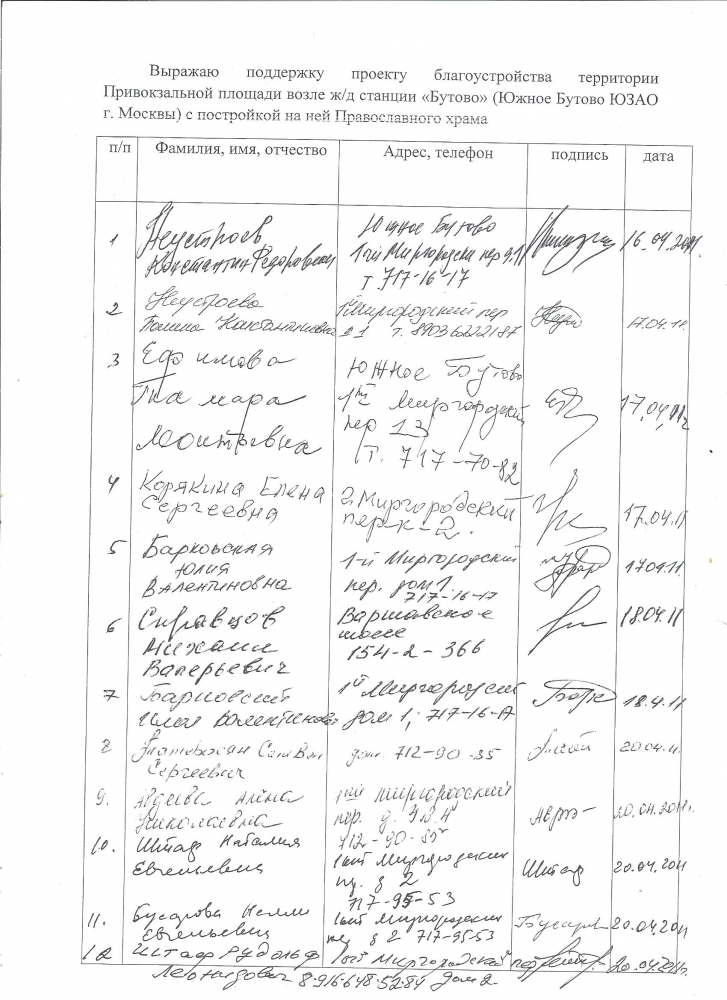 Выражаю поддержку проекту благоустройства территории
Привокзальной площади возле ж/д станции «Бутово» (Южное Бутово ЮЗАО
г. Москвы) с постройкой на ней Православного храма
п/п Фамилия, имя, отчество Адрес, телефон подпись дата
1 Неустроев Южное Бутово 16.04.2011.
Константин Федорович 1-ый Миргородский пер д.1
т. 717-16-17
2 Неустроева 1й Миргородский пер 17.04.11
Полина Константиновна д 1 т. 89036222187
3 Ефимова Южное Бутово
Тамара 1ый Миргородский 17.04.
пер 13
т. 717-70-82
4 Корякина Елена 2. Миргородский 17.04.11
Сергеевна пер-к-2.
5 Барковская 1-й Миргородский 17 04.11.
Юлия пер. дом 1
Валентиновна 717-16-17
6 Справцов Варшавское 18.04.11
Михаил шоссе
Валерьевич 154-2-366
7 1й Миргородский 18.4.11
дом 1,
8 712-90-85 20.04.11.
Сергеевич
9. Авдеева Алёна 1ый Миргородский 20.04.2011.
Николаевна пер. д.
10. Штаф Наталия 712-90-85 Штаф 20.04.2011
Евгеньевна 1ый Миргородский
д 2
717-95-53
11. Бусарова Нелли 1ый Миргородский 20.04.2011
Евгеньевна д 2 717-95-53
12 Штаф Рудольф 1ый Миргородский пер 20.04.2011.
Леонидович 8-916-648-52-84 дом 2